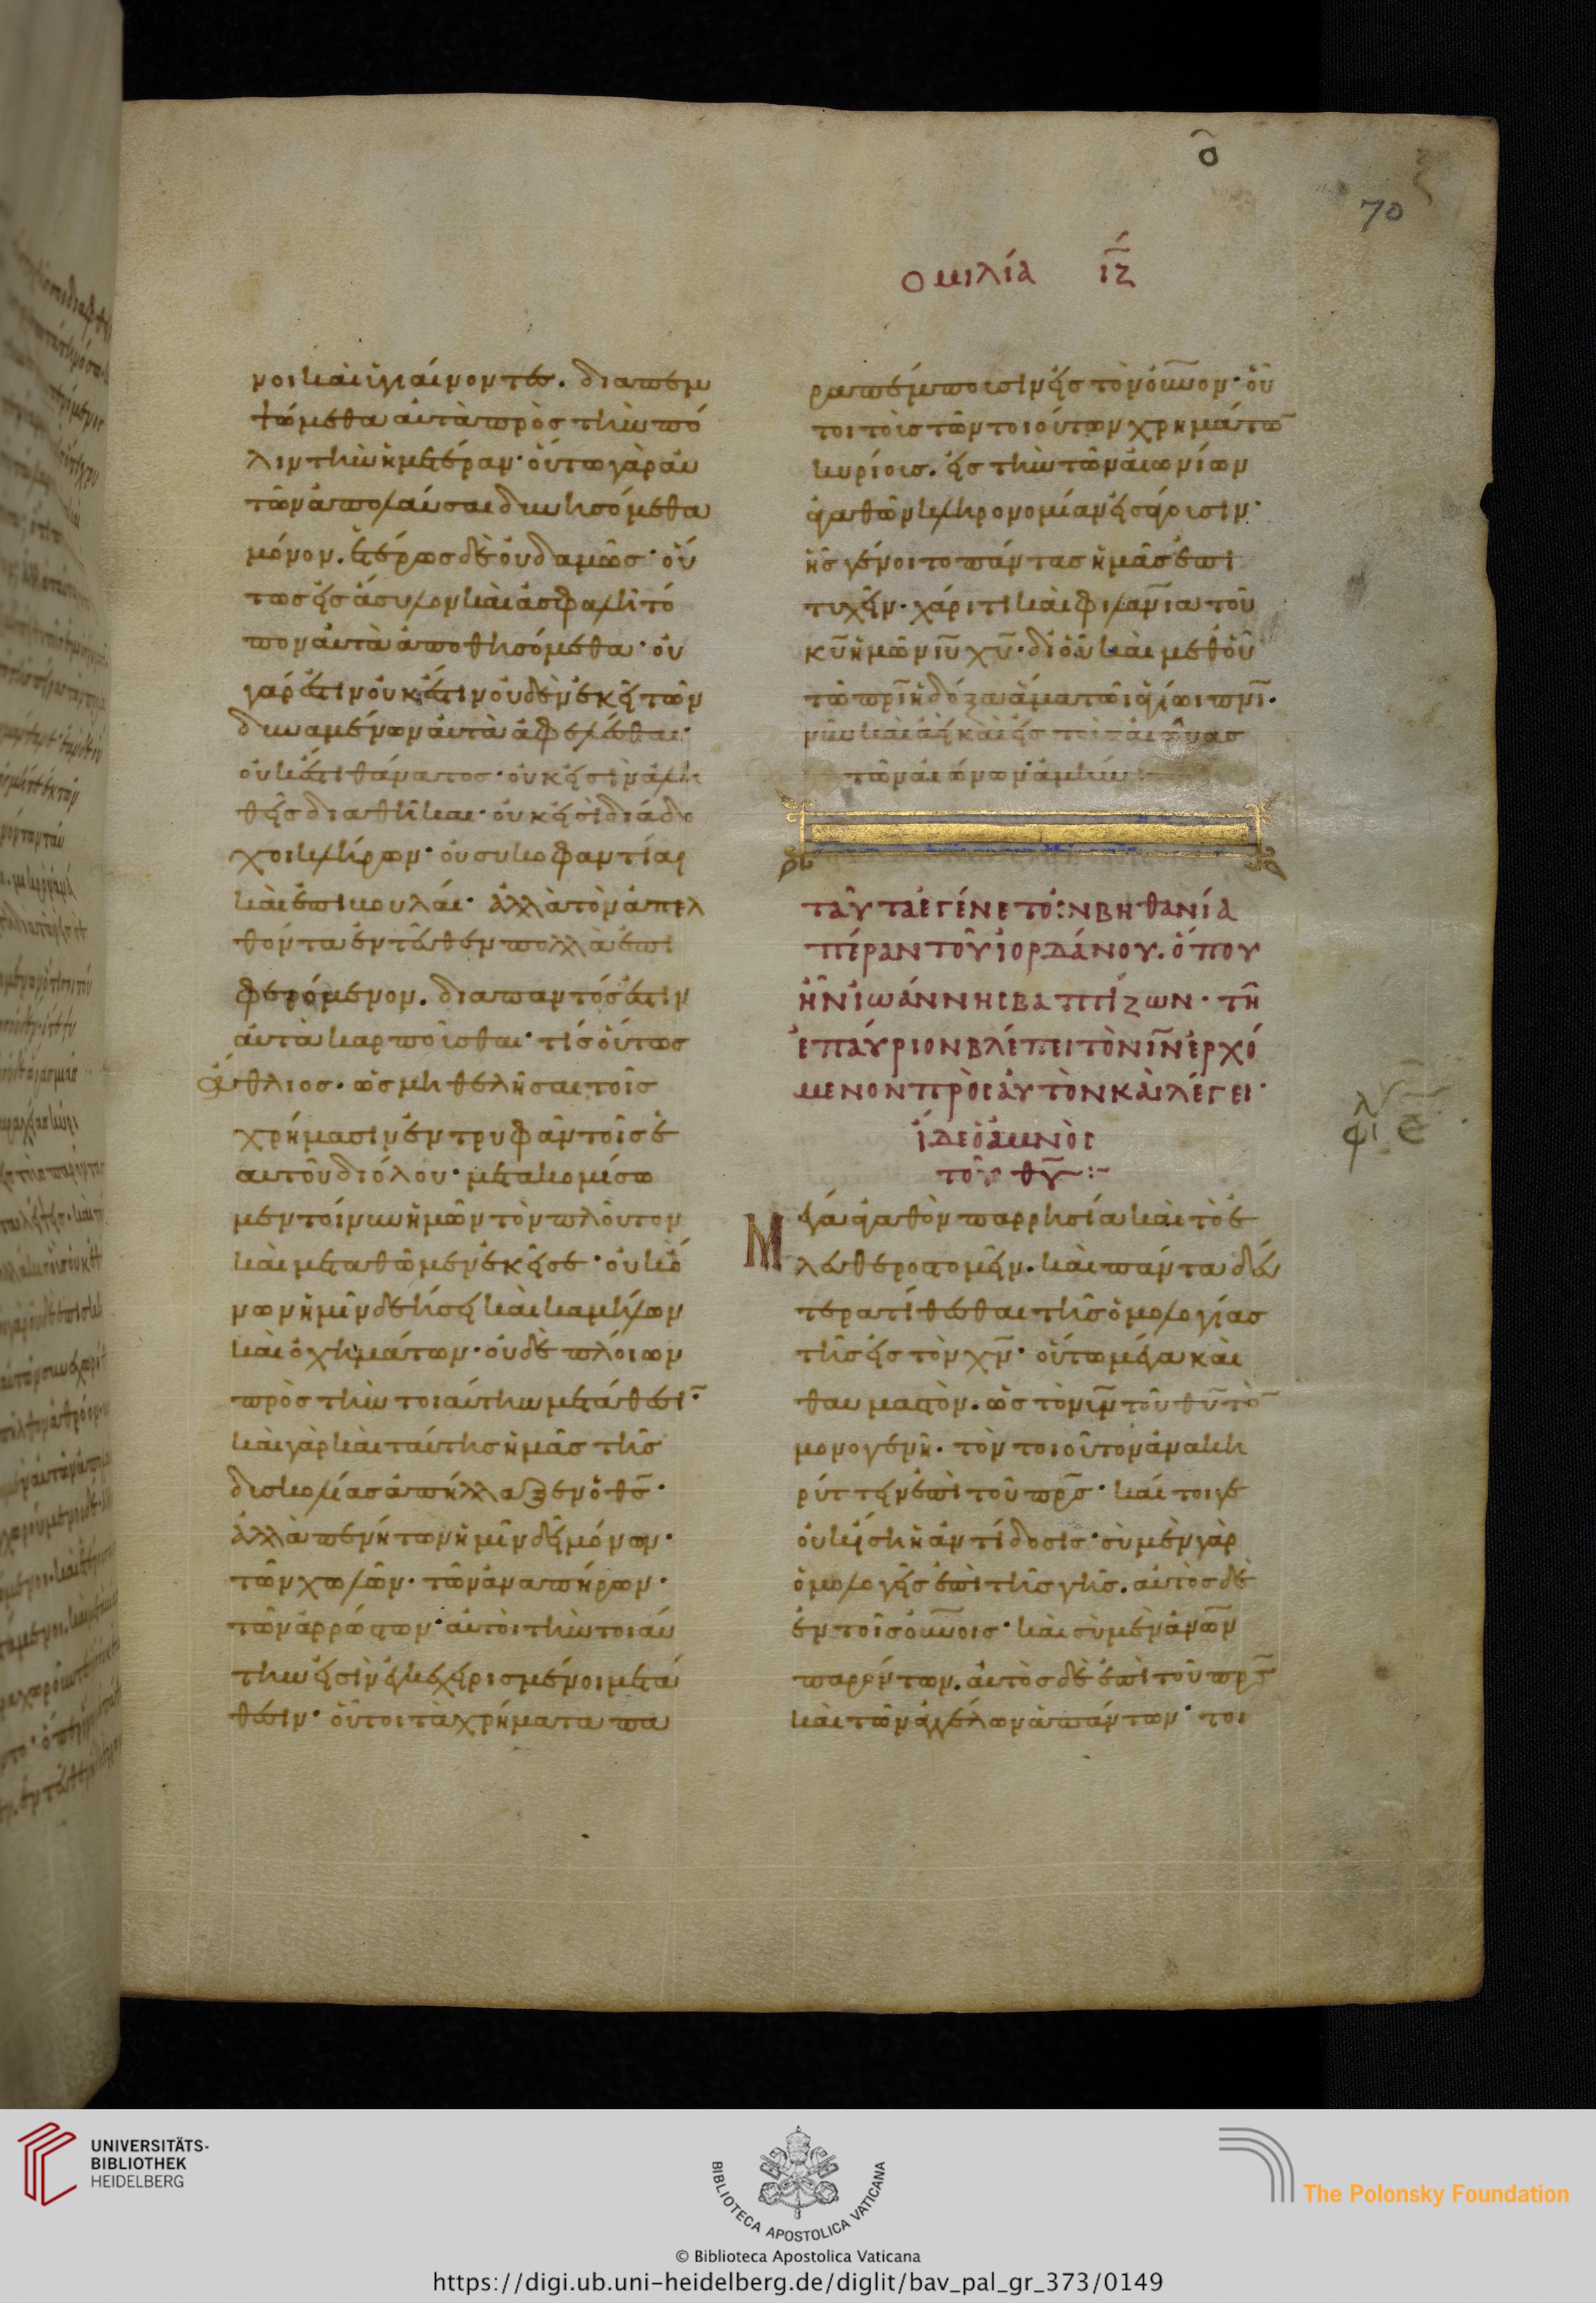 ο̄
70
ομιλία ιζ
νοι καὶ ὑγιαίνοντες. διαπεμ
ψώμεθα αὐτὰ πρὸς τὴν πό
λιν τὴν ἡμετέραν· οὕτω γὰρ αὐ
τῶν ἀπολαύσαι δυνησόμεθα
μόνον. ἑτέρως δὲ οὐδαμῶς· οὕ
τως εἰς ἄσυλον καὶ ἀσφαλῆ τό
πον αὐτὰ ἀποθησόμεθα· οὐ
γάρ ἐστιν οὐκ ἔστιν οὐδὲν ἐκεῖ τῶν
δυναμένων αὐτὰ ἀφελέσθαι·
οὐκ ἔστι θάνατος· οὐκ εἰσὶν ἀλη
θεῖς διαθῆκαι· οὐκ εἰσὶ διάδο
χοι κλήρων· οὐ συκοφαντίαι
καὶ ἐπιβουλάι· ἀλλὰ τὸν ἀπελ
θόντα ἐντεῦθεν πολλὰ ἐπι
φερόμενον. διαπαντός ἐστιν
αὐτὰ καρποῦσθαι· τίς οὕτως
ἄθλιος. ὡς μὴ θελῆσαι τοῖς
χρήμασιν ἐντρυφᾶν τοῖς ἑ
αυτοῦ διόλου· μετακομίσω
μεν τοίνυν ἡμῶν τὸν πλοῦτον
καὶ μεταθῶμεν ἐκεῖσε· οὐκ ὄ
νων ἡμῖν δεήσει καὶ καμήλων
καὶ ὀχημάτων· οὐδὲ πλοίων
πρὸς τὴν τοιαύτην μετάθεσι̅·
καὶ γὰρ καὶ ταύτης ἡμᾶς τῆς
δισκολίας ἀπήλλαξεν ὁ θ̅ς̅·
ἀλλὰ πενήτων ἡμῖν δεῖ μόνων·
τῶν χωλῶν· τῶν ἀναπήρων·
τῶν ἀρρώστων· αὐτοὶ τὴν τοιαύ
την εἰσὶν ἐγκεχειρισμένοι μετά
θεσιν· οὗτοι τὰ χρήματα πα
ραπέμπουσιν εἰς τὸν οὐ̅νον· οὗ
τοι τοὺς τῶν τοιούτων χρημάτω̅
κυρίοις. εἰς τὴν τῶν αἰωνίων
ἀγαθῶν κληρονομίαν εἰσάγουσιν·
ἧς γένοιτο πάντας ἡμᾶς ἐπι
τυχεῖν· χάριτι καὶ φιλαν̅ια τοῦ
κ̅υ̅ ἡμῶν ι̅υ̅ χ̅υ̅· δι οὗ καὶ μεθ οὗ
τῷ π̅ρ̅ι̅ ἡ δόξα ἅμα τῶι ἁγίωι π̅ν̅ι̅·
νῦν καὶ ἀεὶ καὶ εἰς τοὺς αἰῶνας
τῶν αἰώνων ἀμήν
ταῦτα ἐγένετο ἐν βηθανία
πέραν τοῦ ἰορδάνου. ὅπου
ἦν ἰωάννης βαπτίζων· τῆ
ἐπαύριον βλέπει τὸν ι̅ν̅ ἐρχό
μενον πρὸς ἑαυτὸν καὶ λέγει·
ἴδε ὁ ἀμνὸς
τοῦ θ̅υ̅ :~
λ
φι ε
Μέγα ἀγαθὸν παρρησία καὶ τὸ ἐ
λευθεροστομεῖν. καὶ πάντα δεύ
τερα τίθεσθαι τῆς ὁμολογίας
τῆς εἰς τὸν χ̅ν̅· οὕτω μέγα καὶ
θαυμαστὸν. ὡς τὸν υ̅ν̅ τοῦ θ̅υ̅ τὸ̅
μονογενῆ. τὸν τοιοῦτον ἀνακη
ρύττειν ἐπὶ τοῦ π̅ρ̅ς̅· καί τοιγε
οὐκ ἴση ἡ ἀντίδοσις· σὺ μὲν γὰρ
ὁμολογεῖς ἐπὶ τῆς γῆς. αὐτὸς δὲ
ἐν τοῖς οὐ̅νοις· καὶ σὺ μὲν ἀν̅ων
παρόντων. αὐτὸς δὲ ἐπὶ τοῦ π̅ρ̅ς̅
καὶ τῶν ἀγγέλων ἁπάντων· τοι
UNIVERSITÄTS-
BIBLIOTHEK
HEIDELBERG
BIBLIOTECA APOSTOLICA VATICANA
The Polonsky Foundation
© Biblioteca Apostolica Vaticana
https://digi.ub.uni-heidelberg.de/diglit/bav_pal_gr_373/0149